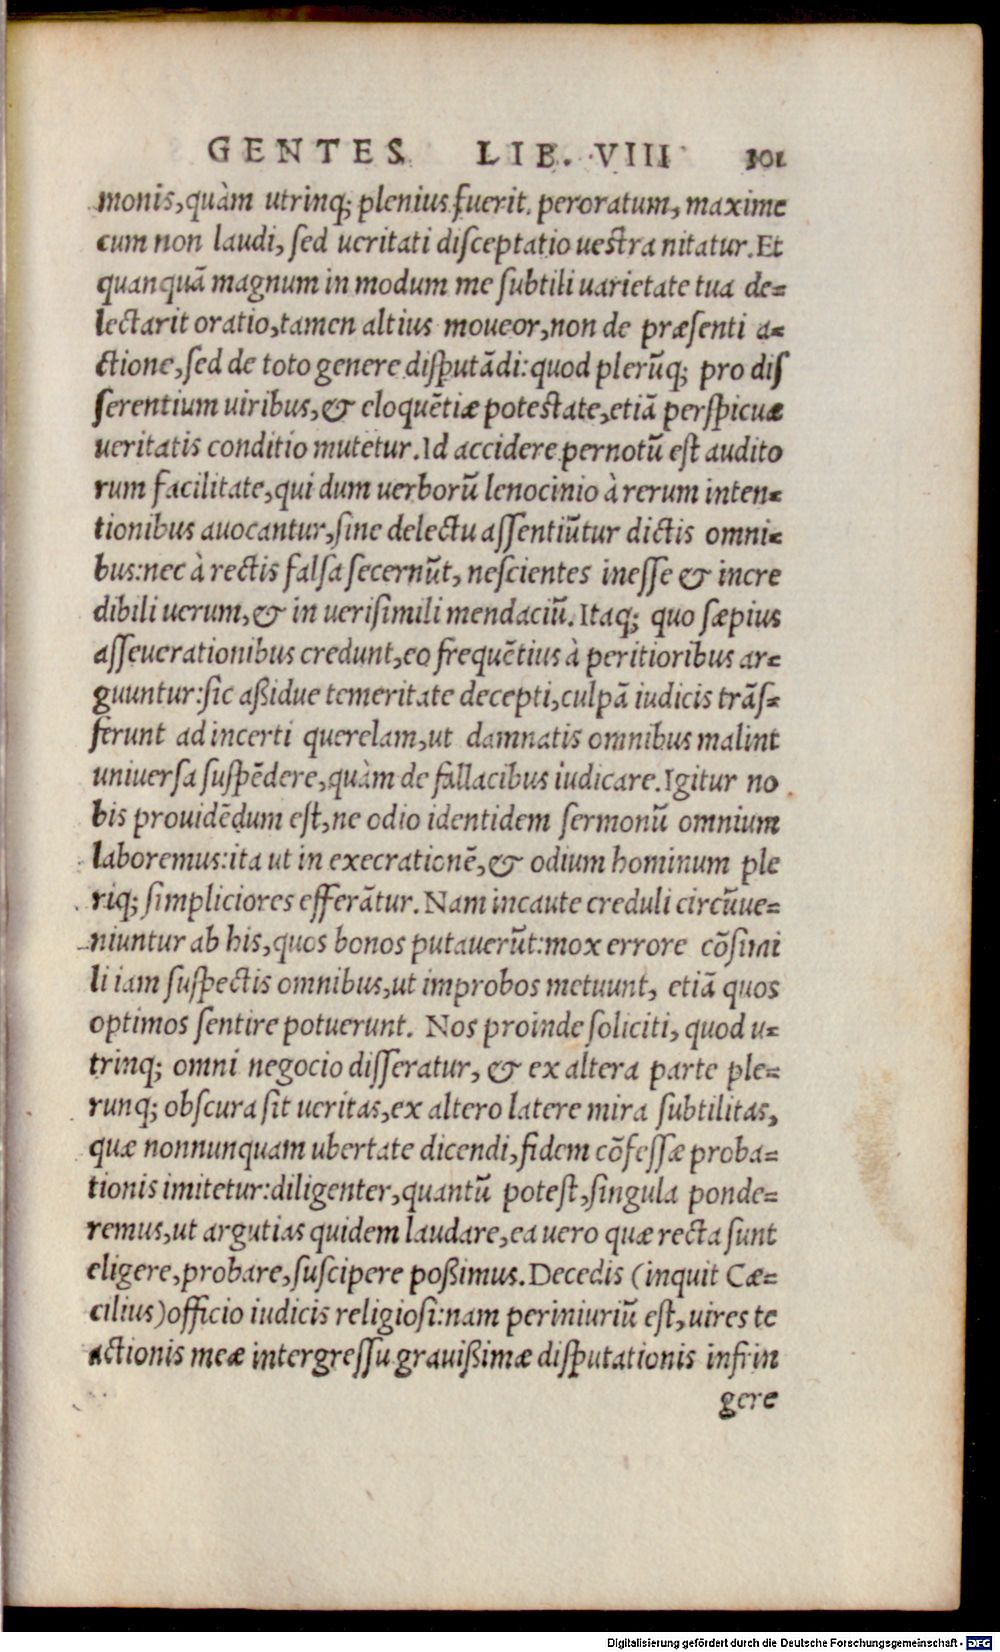 GENTES LIB. VIII 301
monis, quàm utrinq; plenius fuerit. peroratum, maxime
cum non laudi, sed ueritati disceptatio uestra nitatur. Et
quanquã magnum in modum me subtili uarietate tua de=
lectarit oratio, tamen altius moueor, non de præsenti a=
ctione, sed de toto genere disputãdi: quod plerũq; pro dis
serentium uiribus, & eloquẽtiæ potestate, etiã perspicuæ
ueritatis conditio mutetur. Id accidere pernotũ est audito
rum facilitate, qui dum uerborũ lenocinio à rerum inten=
tionibus auocantur, sine delectu assentiũtur dictis omni=
bus: nec à rectis falsa secernũt, nescientes inesse & incre
dibili uerum, & in uerisimili mendaciũ. Itaq; quo sæpius
asseuerationibus credunt, eo frequẽtius à peritioribus ar=
guuntur: sic aßidue temeritate decepti, culpã iudicis trãs=
ferunt ad incerti querelam, ut damnatis omnibus malint
uniuersa suspẽdere, quàm de fallacibus iudicare. Igitur no
bis prouidẽdum est, ne odio identidem sermonũ omnium
laboremus: ita ut in execrationẽ, & odium hominum ple
riq; simpliciores efferãtur. Nam incaute creduli circũue=
niuntur ab his, quos bonos putauerũt: mox errore cõsimi
li iam suspectis omnibus, ut improbos metuunt, etiã quos
optimos sentire potuerunt. Nos proinde soliciti, quod u=
trinq; omni negocio disseratur, & ex altera parte ple=
runq; obscura sit ueritas, ex altero latere mira subtilitas,
quæ nonnunquam ubertate dicendi, fidem cõfessæ proba=
tionis imitetur: diligenter, quantũ potest, singula ponde=
remus, ut argutias quidem laudare, ea uero quæ recta sunt
eligere, probare, suscipere poßimus. Decedis (inquit Cæ=
cilius) officio iudicis religiosi: nam periniuriũ est, uires te
actionis meæ intergressu grauißimæ disputationis infrin
gere
Digitalisierung gefördert durch die Deutsche Forschungsgemeinschaft - DFG